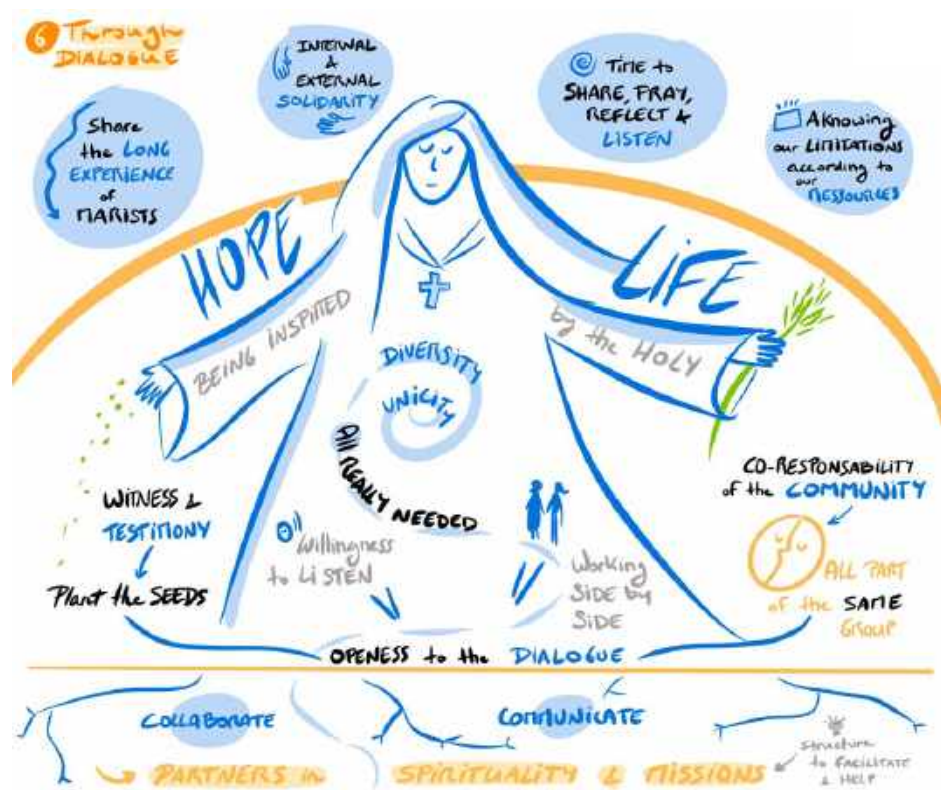 6 Through
DIALOGUE
Share
the LONG
EXPERIENCE
of
MARISTS
INTERNAL
&
EXTERNAL
SOLIDARITY
TIME to
SHARE, PRAY,
REFLECT &
LISTEN
AKNOWING
our LIMITATIONS
according to
our
RESSOURCES
HOPE
LIFE
BEING INSPIRED
by the HOLY
DIVERSITY
UNICITY
All REALLY NEEDED
WITNESS &
TESTIMONY
Plant the SEEDS
Willingness
to LISTEN
Working
SIDE by
SIDE
CO-RESPONSABILITY
of the COMMUNITY
ALL PART
of the SAME
GROUP
OPENESS to the DIALOGUE
COLLABORATE
COMMUNICATE
PARTNERS in SPIRITUALITY & MISSIONS
Structure
to FACILITATE
& HELP